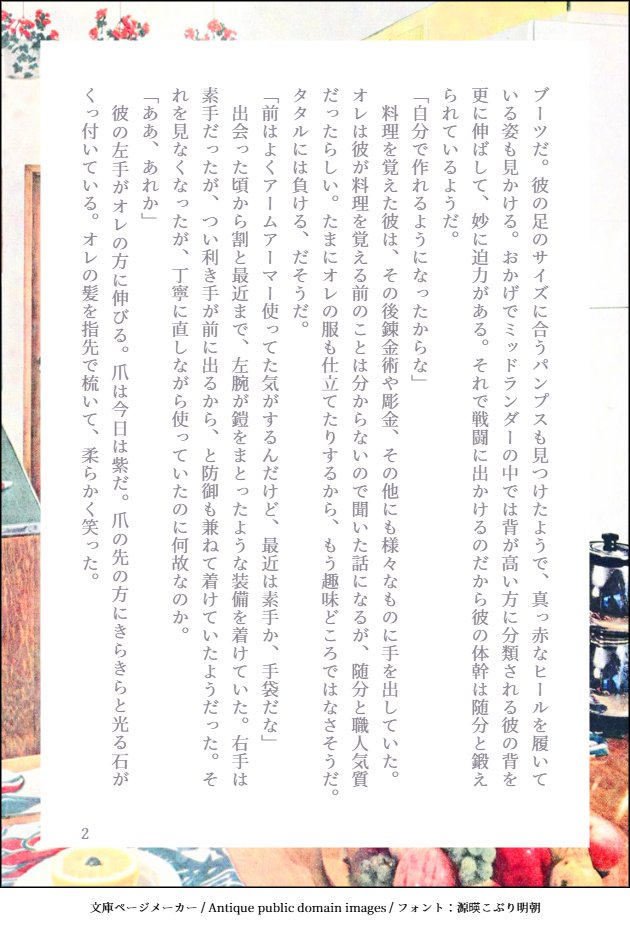 ブーツだ。彼の足のサイズに合うパンプスも見つけたようで、真っ赤なヒールを履いて
いる姿も見かける。おかげでミッドランダーの中では背が高い方に分類される彼の背を
更に伸ばして、妙に迫力がある。それで戦闘に出かけるのだから彼の体幹は随分と鍛え
られているようだ。
「自分で作れるようになったからな」
　料理を覚えた彼は、その後錬金術や彫金、その他にも様々なものに手を出していた。
オレは彼が料理を覚える前のことは分からないので聞いた話になるが、随分と職人気質
だったらしい。たまにオレの服も仕立てたりするから、もう趣味どころではなさそうだ。
タタルには負ける、だそうだ。
「前はよくアームアーマー使ってた気がするんだけど、最近は素手か、手袋だな」
　出会った頃から割と最近まで、左腕が鎧をまとったような装備を着けていた。右手は
素手だったが、つい利き手が前に出るから、と防御も兼ねて着けていたようだった。そ
れを見なくなったが、丁寧に直しながら使っていたのに何故なのか。
「ああ、あれか」
　彼の左手がオレの方に伸びる。爪は今日は紫だ。爪の先の方にきらきらと光る石が
くっ付いている。オレの髪を指先で梳いて、柔らかく笑った。
2
文庫ページメーカー / Antique public domain images / フォント：源暎こぶり明朝